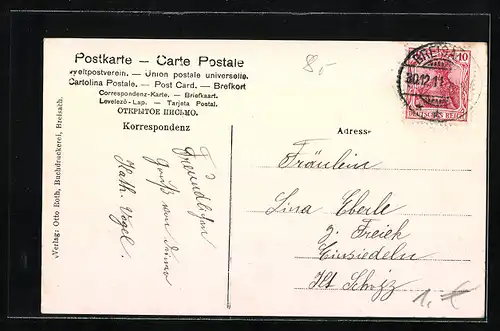 Postkarte — Carte Postale
Weltpostverein. — Union postale universelle.
Cartolina Postale. — Post Card. — Brefkort
Correspondenz-Karte. — Briefkaart.
Levelező-Lap. — Tarjeta Postal.
ОТКРЫТОЕ ПИСЬМО.
Korrespondenz
Adresse
8.-
10
30.12.11
DEUTSCHES REICH
Verlag: Otto Roth, Buchdruckerei, Breisach.
Freundlichen
Gruß von Deiner
Kath. Vogel.
Fräulein
Lina Eberle
z. Freiek
Einsiedeln
Kt Schwyz
1.-€